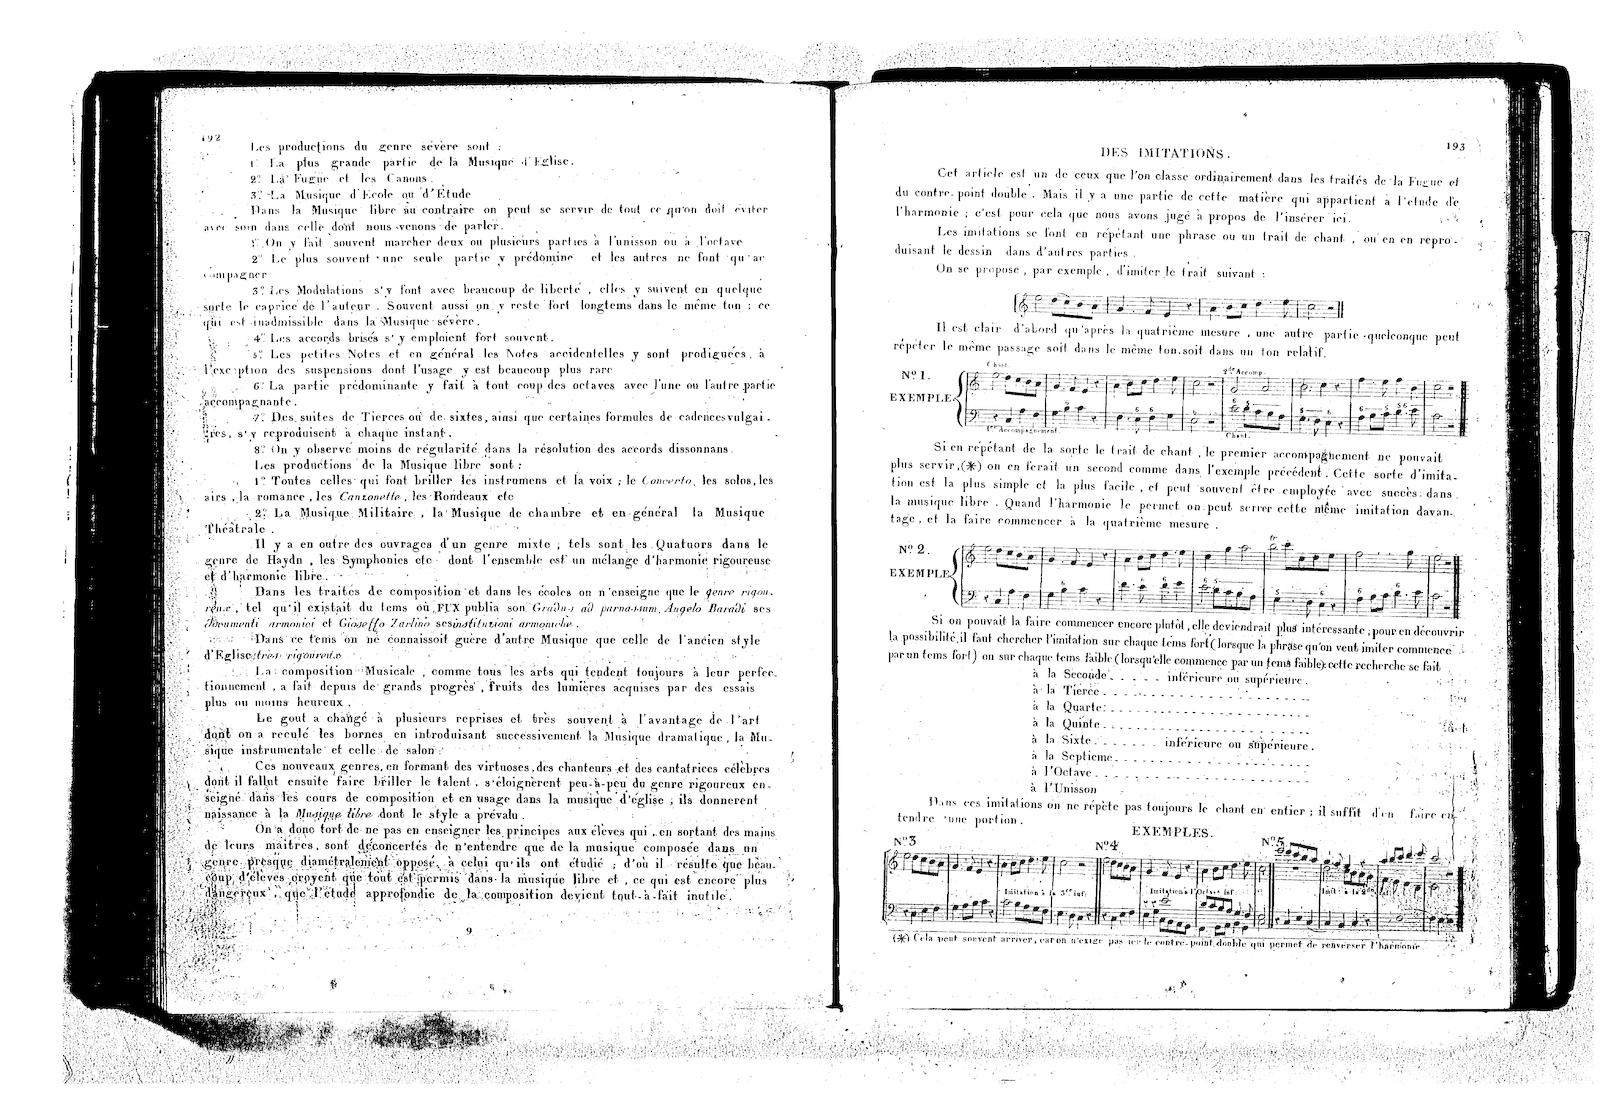 192
Les productions du genre sévère sont :
1° La plus grande partie de la Musique d'Eglise.
2° La Fugue et les Canons.
3° La Musique d'Ecole ou d'Etude
Dans la Musique libre au contraire on peut se servir de tout ce qu'on doit éviter
avec soin dans celle dont nous venons de parler.
1° On y fait souvent marcher deux ou plusieurs parties à l'unisson ou à l'octave
2° Le plus souvent une seule partie y prédomine et les autres ne font qu'ac
compagner
3° Les Modulations s'y font avec beaucoup de liberté, elles y suivent en quelque
sorte le caprice de l'auteur. Souvent aussi on y reste fort longtems dans le même ton : ce
qui est inadmissible dans la Musique sévère.
4° Les accords brisés s'y emploient fort souvent.
5° Les petites Notes et en général les Notes accidentelles y sont prodiguées, à
l'exception des suspensions dont l'usage y est beaucoup plus rare
6° La partie prédominante y fait à tout coup des octaves avec l'une ou l'autre partie
accompagnante.
7° Des suites de Tierces ou de sixtes, ainsi que certaines formules de cadences vulgai-
res, s'y reproduisent à chaque instant.
8° On y observe moins de régularité dans la résolution des accords dissonnans.
Les productions de la Musique libre sont :
1° Toutes celles qui font briller les instrumens et la voix ; le Concerto, les solos, les
airs, la romance, les Canzonette, les Rondeaux etc
2° La Musique Militaire, la Musique de chambre et en général la Musique
Théâtrale.
Il y a en outre des ouvrages d'un genre mixte ; tels sont les Quatuors dans le
genre de Haydn, les Symphonies etc dont l'ensemble est un mélange d'harmonie rigoureuse
et d'harmonie libre.
Dans les traités de composition et dans les écoles on n'enseigne que le genre rigou-
reux, tel qu'il existait du tems où FUX publia son Gradus ad parnassum, Angelo Baradi ses
Documenti armonici et Gioseffo Zarlino ses institutioni armoniche.
Dans ce tems on ne connaissoit guère d'autre Musique que celle de l'ancien style
d'Eglise, très rigoureux
La composition Musicale, comme tous les arts qui tendent toujours à leur perfec-
tionnement, a fait depuis de grands progrès, fruits des lumières acquises par des essais
plus ou moins heureux.
Le gout a changé à plusieurs reprises et très souvent à l'avantage de l'art
dont on a reculé les bornes en introduisant successivement la Musique dramatique, la Mu-
sique instrumentale et celle de salon.
Ces nouveaux genres, en formant des virtuoses, des chanteurs et des cantatrices célèbres
dont il fallut ensuite faire briller le talent, s'éloignèrent peu-à-peu du genre rigoureux en-
seigné dans les cours de composition et en usage dans la musique d'église ; ils donnerent
naissance à la Musique libre dont le style a prévalu.
On a donc tort de ne pas en enseigner les principes aux élèves qui, en sortant des mains
de leurs maitres, sont déconcertés de n'entendre que de la musique composée dans un
genre presque diamétralement opposé à celui qu'ils ont étudié ; d'où il résulte que beau-
coup d'élèves croyent que tout est permis dans la musique libre et, ce qui est encore plus
dangereux, que l'étude approfondie de la composition devient tout-à-fait inutile.
9
193
DES IMITATIONS.
Cet article est un de ceux que l'on classe ordinairement dans les traités de la Fugue et
du contre-point double. Mais il y a une partie de cette matière qui appartient à l'etude de
l'harmonie ; c'est pour cela que nous avons jugé à propos de l'insérer ici.
Les imitations se font en répétant une phrase ou un trait de chant, ou en en repro-
duisant le dessin dans d'autres parties.
On se propose, par exemple, d'imiter le trait suivant :
Il est clair d'abord qu'après la quatrième mesure, une autre partie quelconque peut
répéter le même passage soit dans le même ton, soit dans un ton relatif.
N° 1.
EXEMPLE
Chant.
2de Accomp.
1er Accompagnement.
Chant.
Si en répétant de la sorte le trait de chant, le premier accompagnement ne pouvait
plus servir, (*) on en ferait un second comme dans l'exemple précédent. Cette sorte d'imita-
tion est la plus simple et la plus facile, et peut souvent être employée avec succès dans
la musique libre. Quand l'harmonie le permet on peut serrer cette même imitation davan-
tage, et la faire commencer à la quatrième mesure.
N° 2.
EXEMPLE
Si on pouvait la faire commencer encore plutôt, elle deviendrait plus intéressante ; pour en découvrir
la possibilité, il faut chercher l'imitation sur chaque tems fort (lorsque la phrase qu'on veut imiter commence
par un tems fort) ou sur chaque tems faible (lorsqu'elle commence par un tems faible): cette recherche se fait
à la Seconde. . . . . . inférieure ou supérieure.
à la Tierce
à la Quarte
à la Quinte
à la Sixte . . . . . . inférieure ou supérieure.
à la Septieme
à l'Octave
à l'Unisson
Dans ces imitations on ne répète pas toujours le chant en entier ; il suffit d'en faire en-
tendre une portion.
EXEMPLES.
N° 3
N° 4
N° 5
Imitation à la 3ce inf:
Imitation à l'Octave inf
Imit: à la
(*) Cela peut souvent arriver, car on n'exige pas ici le contre-point double qui permet de renverser l'harmonie